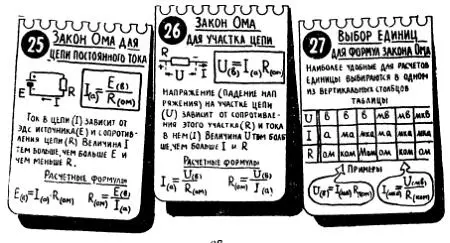 25
ЗАКОН ОМА ДЛЯ
ЦЕПИ ПОСТОЯННОГО ТОКА
E
R
I
I(а) = E(в) / R(ом)
ТОК В ЦЕПИ (I) ЗАВИСИТ ОТ
ЭДС ИСТОЧНИКА(E) И СОПРОТИВ
ЛЕНИЯ ЦЕПИ (R) ВЕЛИЧИНА I
ТЕМ БОЛЬШЕ, ЧЕМ БОЛЬШЕ E И
ЧЕМ МЕНЬШЕ R.
РАСЧЕТНЫЕ ФОРМУЛЫ
E(в)=I(а)·R(ом) R(ом)=E(в)/I(а)
26
ЗАКОН ОМА
ДЛЯ УЧАСТКА ЦЕПИ
R
U I
U(в)=I(а)R(ом)
НАПРЯЖЕНИЕ (ПАДЕНИЕ НАП
РЯЖЕНИЯ) НА УЧАСТКЕ ЦЕПИ
(U) ЗАВИСИТ ОТ СОПРОТИВЛЕ
НИЯ ЭТОГО УЧАСТКА(R) И ТОКА
В НЕМ(I) ВЕЛИЧИНА U ТЕМ БОЛЬ
ШЕ, ЧЕМ БОЛЬШЕ I И R
РАСЧЕТНЫЕ ФОРМУЛЫ
I(а)=U(в)/R(ом) R(ом)=U(в)/I(а)
27
ВЫБОР ЕДИНИЦ
ДЛЯ ФОРМУЛ ЗАКОНА ОМА
НАИБОЛЕЕ УДОБНЫЕ ДЛЯ РАСЧЕТОВ
ЕДИНИЦЫ ВЫБИРАЮТСЯ В ОДНОМ
ИЗ ВЕРТИКАЛЬНЫХ СТОЛБЦОВ
ТАБЛИЦЫ
U В В В МВ МВ МКВ
I А МА МКА МА МКА МКА
R ОМ КОМ МОМ ОМ КОМ ОМ
ПРИМЕРЫ